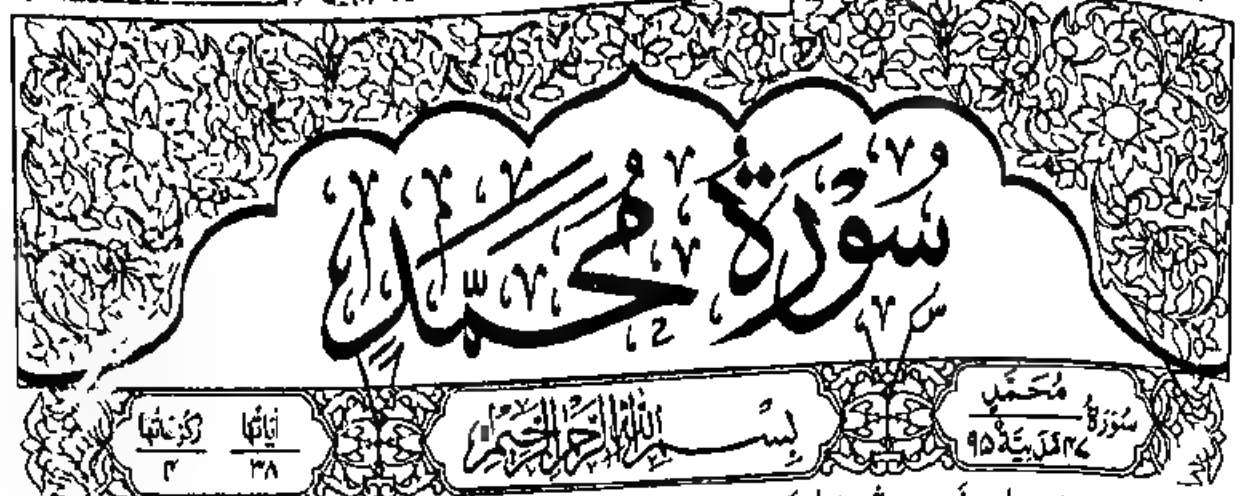 سُوْرَةُ مُحَمَّدٍ
سُوْرَةُ مُحَمَّدٍ ٤٧ مَدَنِيَّةٌ ٩٥
بِسْمِ اللّٰهِ الرَّحْمٰنِ الرَّحِيْمِ
اٰيَاتُهَا ٣٨ رُكُوْعَاتُهَا ٤